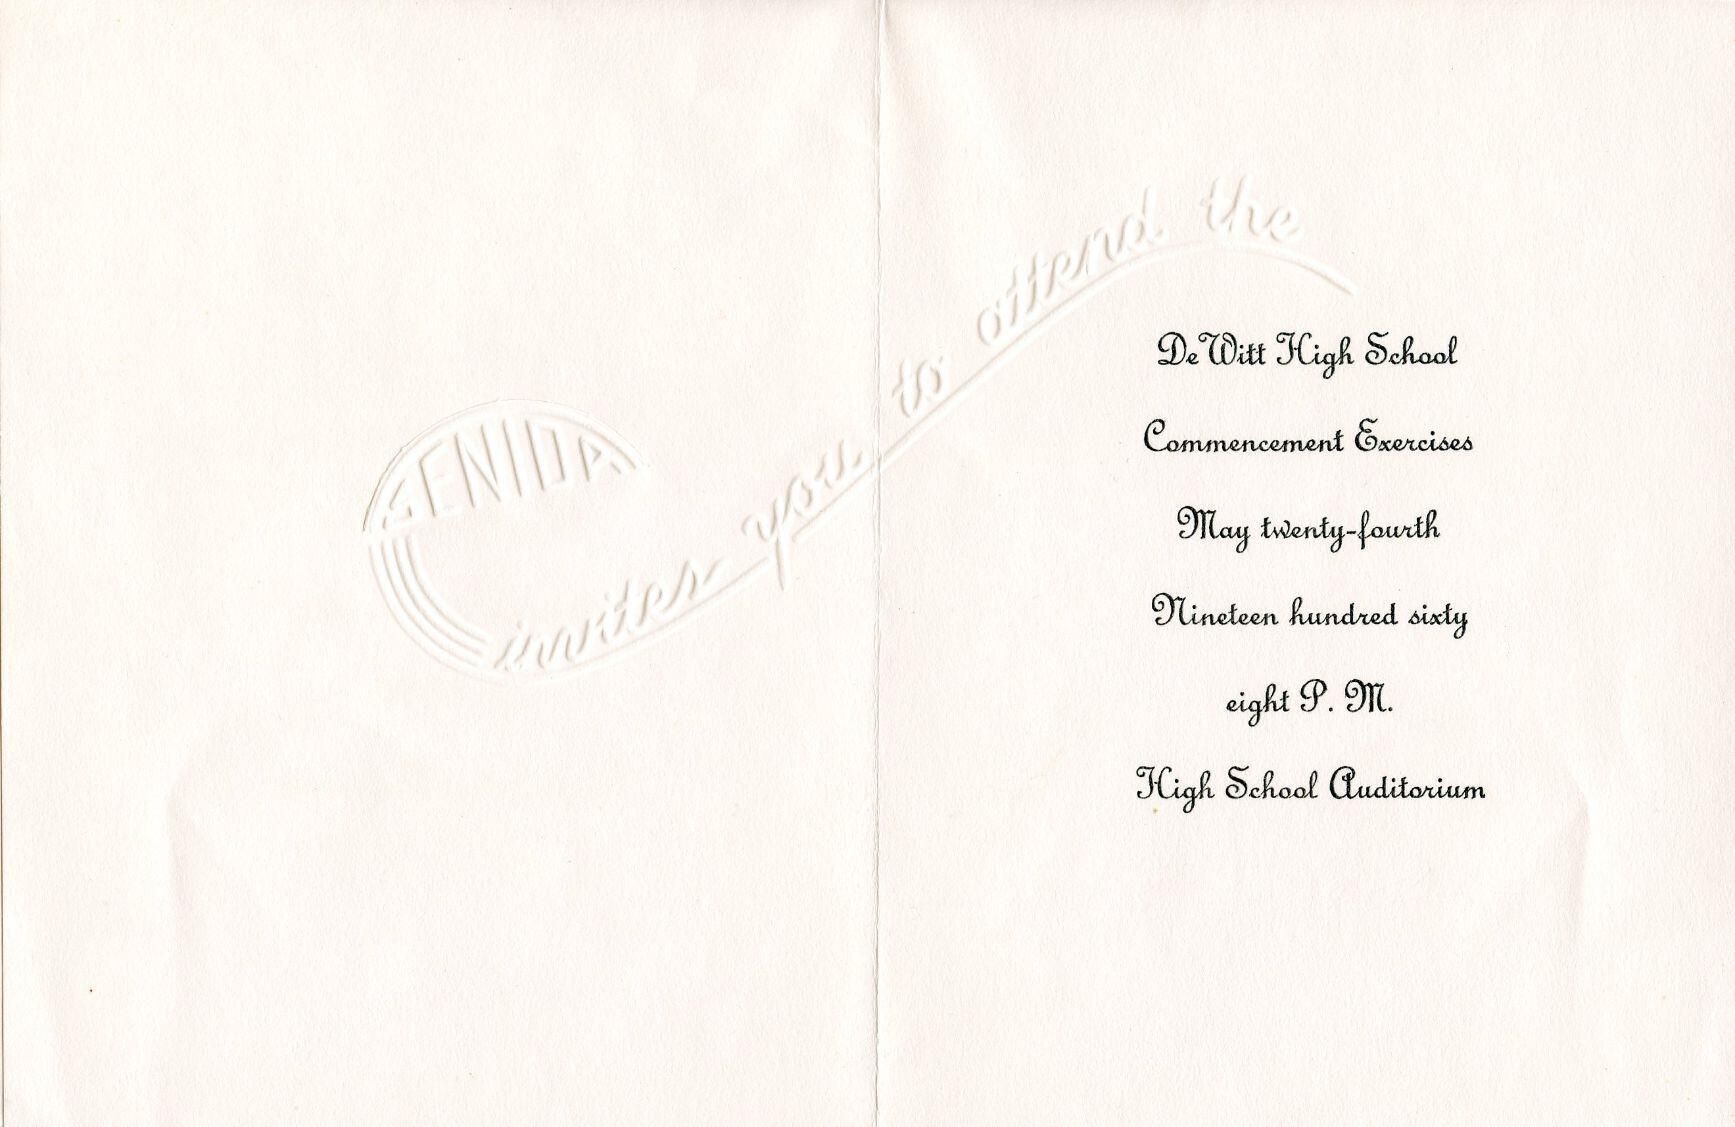 invites you to attend the
De Witt High School
Commencement Exercises
May twenty-fourth
Nineteen hundred sixty
eight P. M.
High School Auditorium